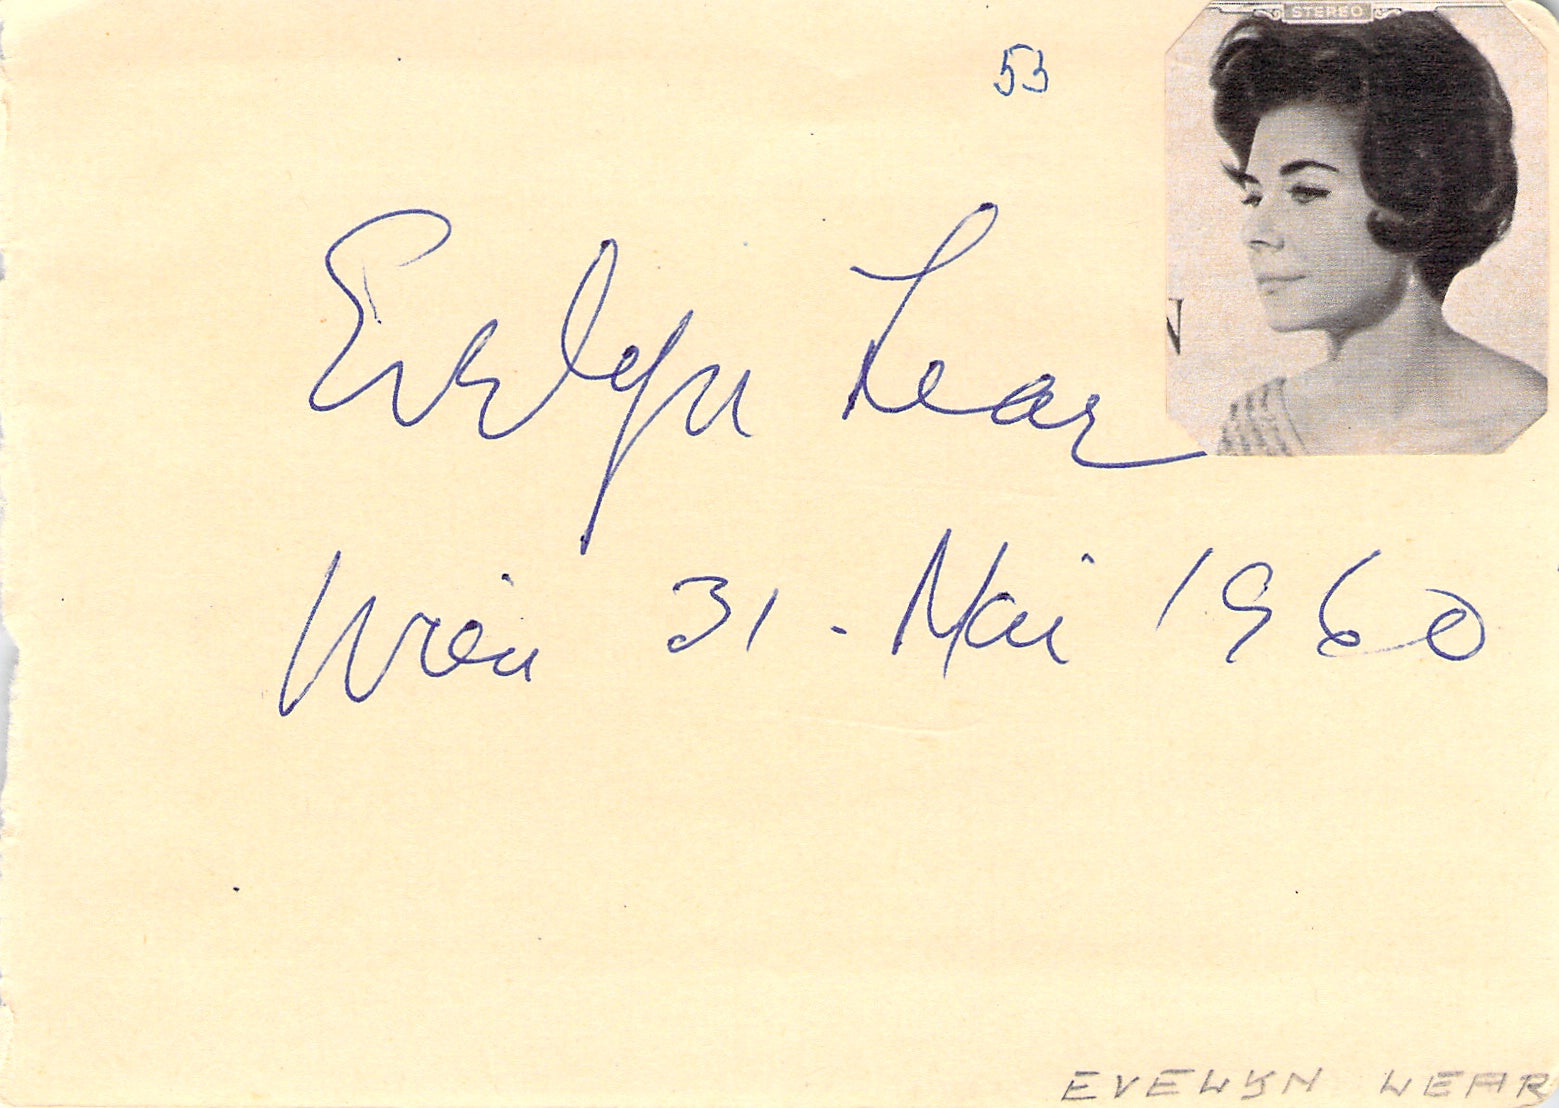 STEREO
53
N
Evelyn Lear
Wien 31. Mai 1960
EVELYN LEAR